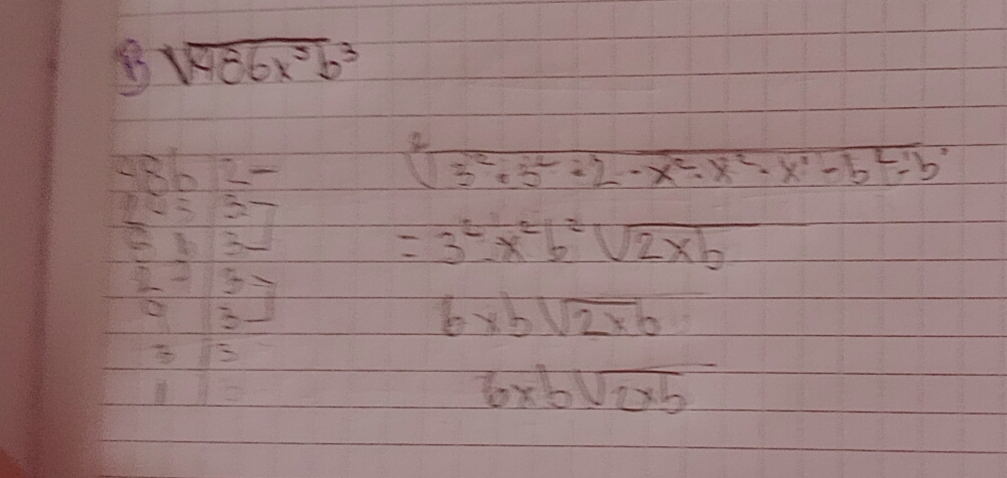 B) √486x⁵b³
486 | 2
243 | 3
81 | 3
27 | 3
9 | 3
3 | 3
1
²√3² · 3² · 2 · x² · x² · x¹ · b² · b¹
= 3² · x² b² √2xb
6xb√2xb
6xb√2xb